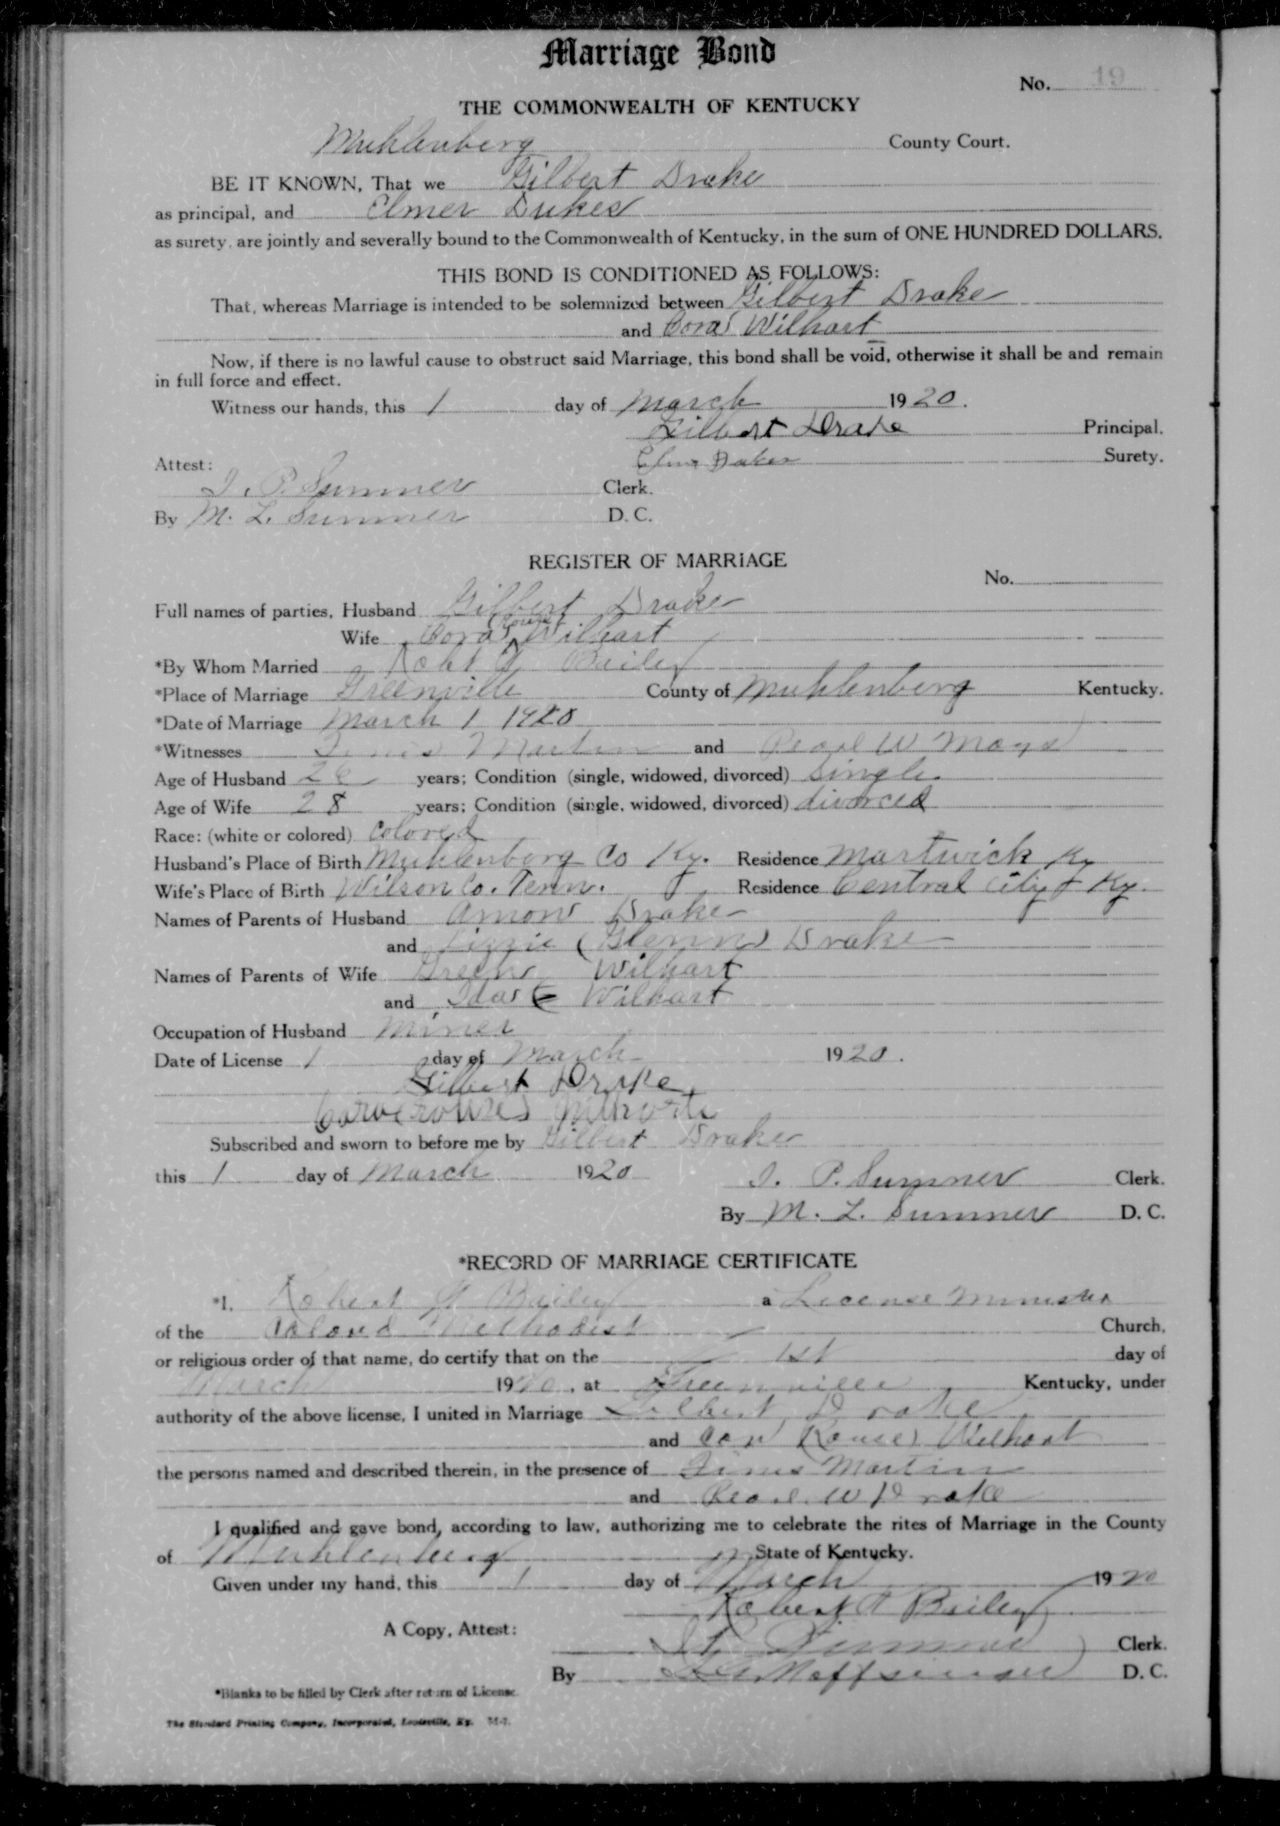 Marriage Bond
No. 19
THE COMMONWEALTH OF KENTUCKY
Muhlenberg County Court.
BE IT KNOWN, That we Gilbert Drake
as principal, and Elmer Dukes
as surety, are jointly and severally bound to the Commonwealth of Kentucky, in the sum of ONE HUNDRED DOLLARS.
THIS BOND IS CONDITIONED AS FOLLOWS:
That, whereas Marriage is intended to be solemnized between Gilbert Drake
and Cora Wilhart
Now, if there is no lawful cause to obstruct said Marriage, this bond shall be void, otherwise it shall be and remain
in full force and effect.
Witness our hands, this 1 day of March 1920.
Gilbert Drake Principal.
Attest: Surety.
J. P. Summer Clerk.
By M. L. Summer D. C.
REGISTER OF MARRIAGE
No.
Full names of parties, Husband Gilbert Drake
Wife Cora (Rouse) Wilhart
*By Whom Married Robt Bailey
*Place of Marriage Greenville County of Muhlenberg Kentucky.
*Date of Marriage March 1 1920
*Witnesses Martin and Pearl W Mays
Age of Husband 26 years; Condition (single, widowed, divorced) Single.
Age of Wife 28 years; Condition (single, widowed, divorced) divorced
Race: (white or colored) Colored
Husband's Place of Birth Muhlenberg Co Ky. Residence Martwick Ky
Wife's Place of Birth Wilson Co. Tenn. Residence Central City Ky.
Names of Parents of Husband Amon Drake
and Lizzie (Glenn) Drake
Names of Parents of Wife Green Wilhart
and Ida Wilhart
Occupation of Husband Miner
Date of License 1 day of March 1920.
Gilbert Drake
Subscribed and sworn to before me by Gilbert Drake
this 1 day of March 1920 J. P. Summer Clerk.
By M. L. Summer D. C.
*RECORD OF MARRIAGE CERTIFICATE
*I, Robert Bailey a License Minister
of the Colored Methodist Church,
or religious order of that name, do certify that on the 1st day of
March 1920, at Greenville Kentucky, under
authority of the above license, I united in Marriage Gilbert Drake
and Cora (Rouse) Wilhart
the persons named and described therein, in the presence of Martin
and Pearl W Drake
I qualified and gave bond, according to law, authorizing me to celebrate the rites of Marriage in the County
of Muhlenberg State of Kentucky.
Given under my hand, this 1 day of March 1920
Robert Bailey
A Copy, Attest:
Summer Clerk.
By D. C.
*Blanks to be filled by Clerk after return of License.
The Standard Printing Company, Incorporated, Louisville, Ky.